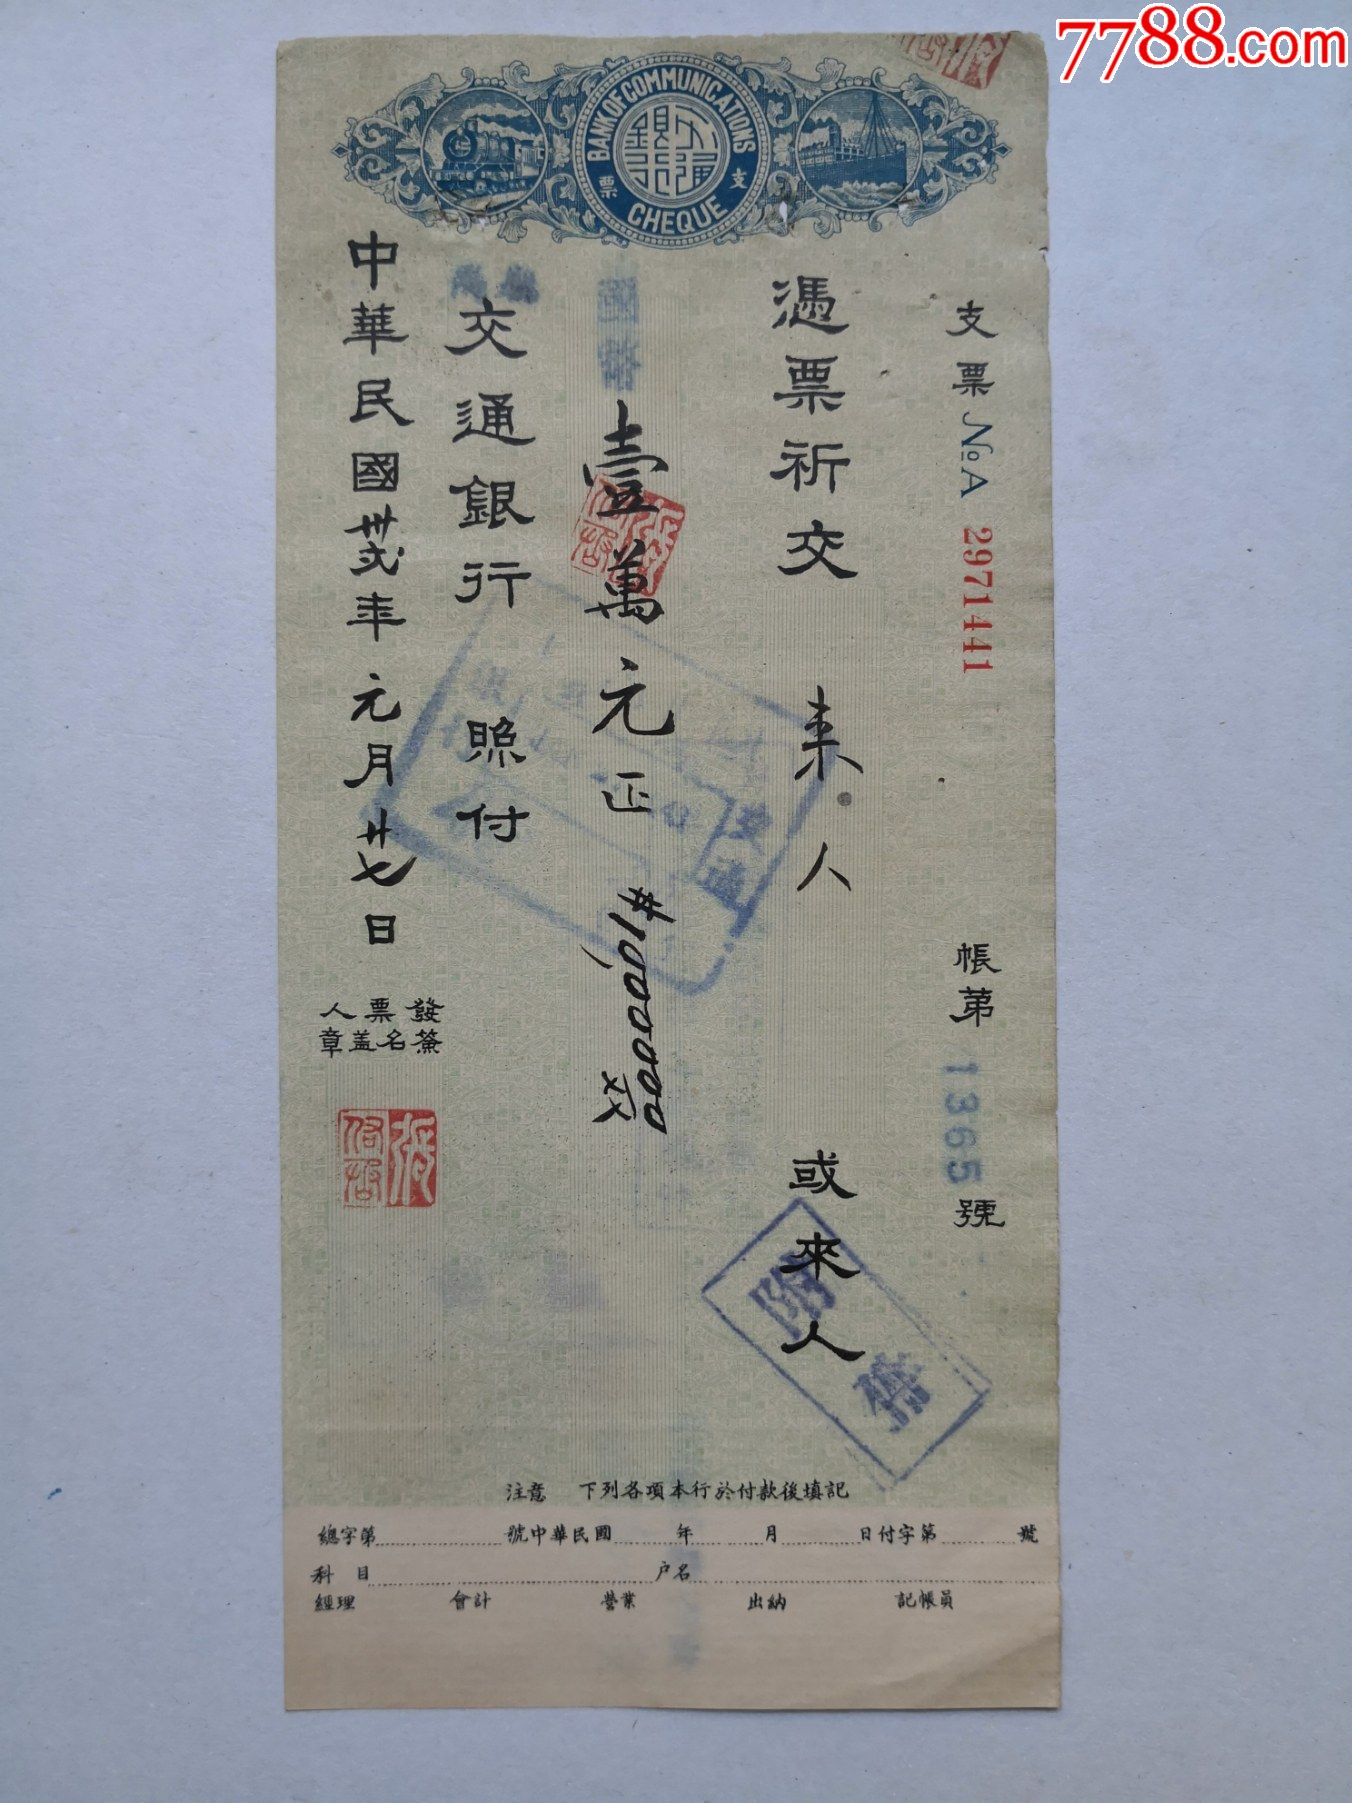 7788.com
BANK OF COMMUNICATIONS
支票
CHEQUE
支票 № A 2971441
帳第 1365 號
憑票祈交 来人 或來人
國幣 壹萬元正 #10,000 00
交通銀行 照付
中華民國卅弍年元月廿七日
發票人
簽名盖章
交通
注意 下列各項本行於付款後填記
總字第 號中華民國 年 月 日付字第 號
科目 户名
經理 會計 營業 出納 記帳員